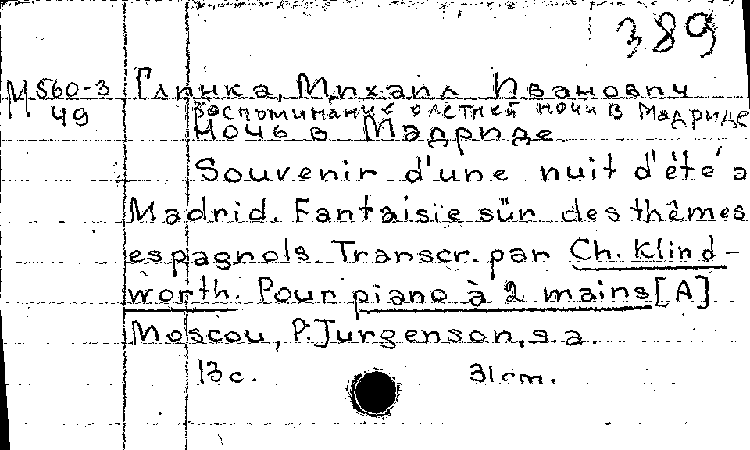 389
М560-3 Глинка, Михаил Иванович
49 Воспоминание о летней ночи в Мадриде
Ночь в Мадриде
Souvenir d'une nuit d'été à
Madrid. Fantaisie sür des thêmes
espagnols. Transcr. par Ch. Klind-
worth. Pour piano à 2 mains [A]
Moscou, P. Jurgenson, s.a.
13 c. 31 cm.